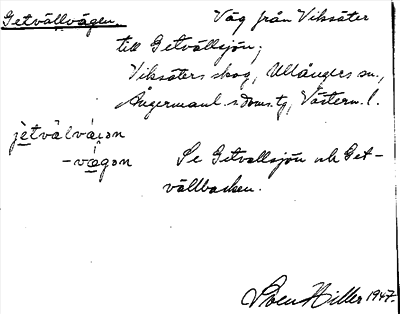 Getvällvägen. Väg från Viksäter
till Getvällsjön;
Viksäters skog, Ullångers sn.,
Ångermanl. s doms.tg, Västern. l.
jètvälváɡən
-vä̀gən Se Getvallsjön och Get-
vällbacken.
Sven Hiller 1947.